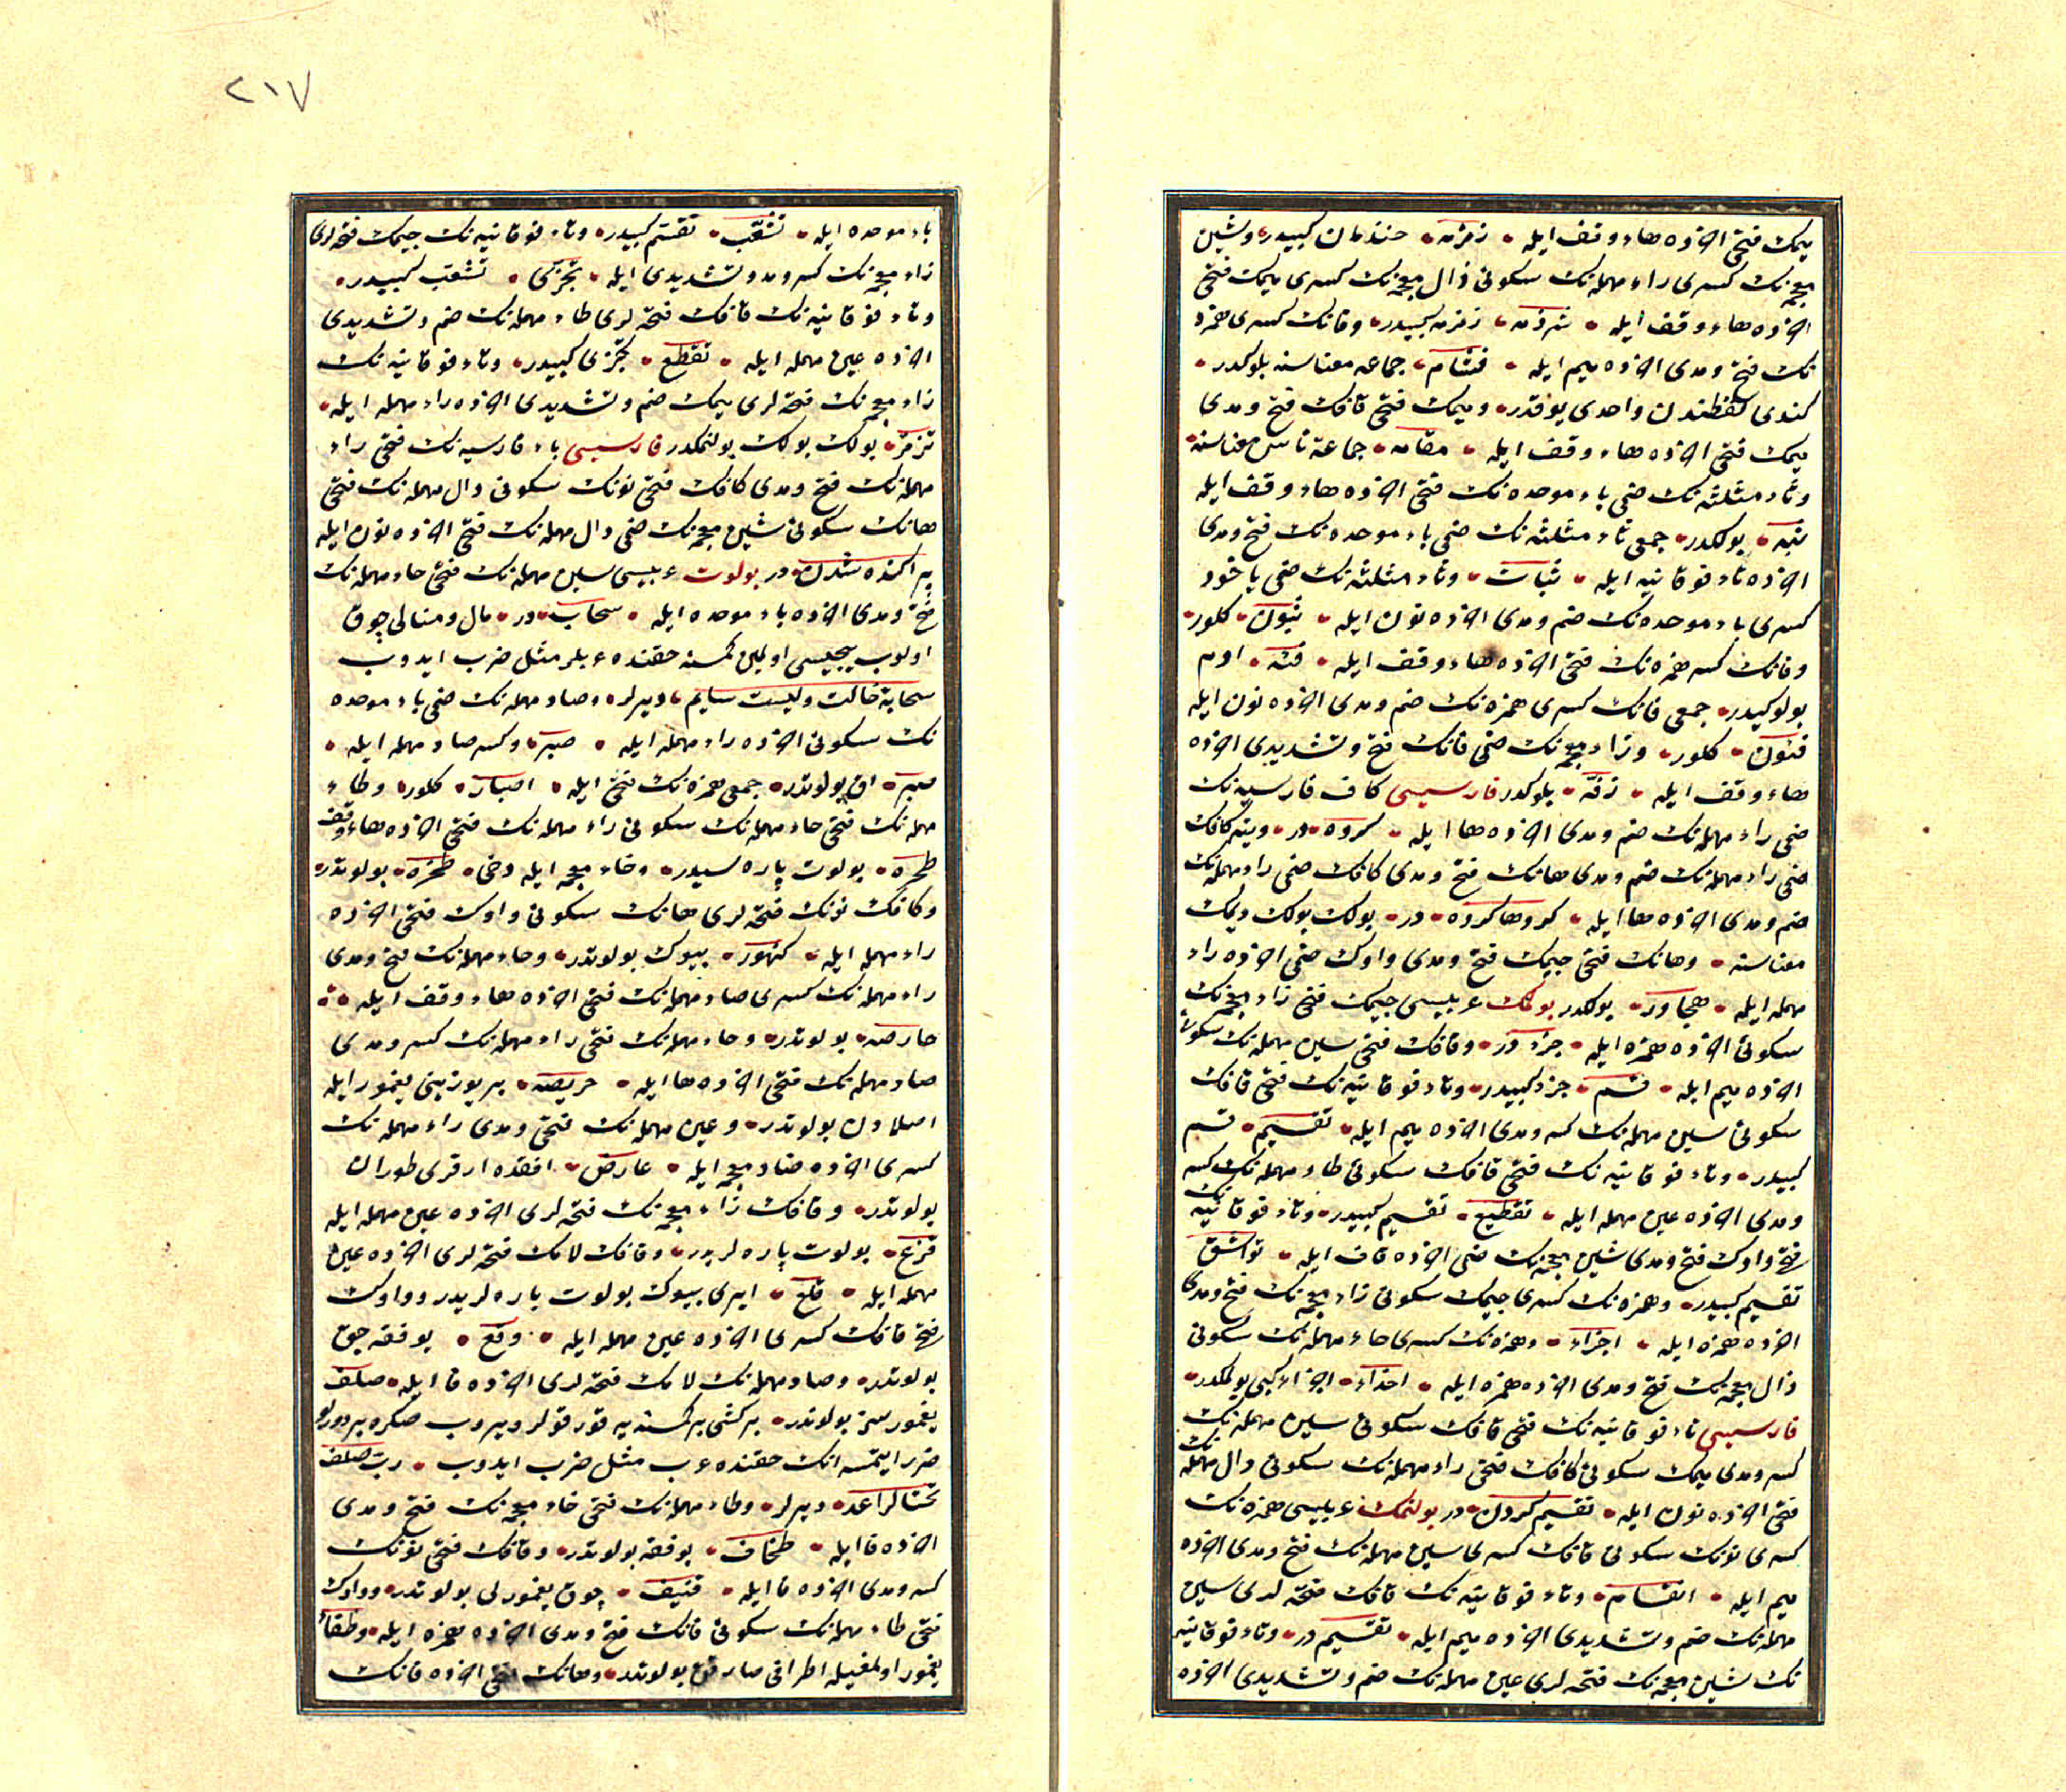 میمك فتحی اخرده هاء وقف ایله زمزمه خندمان كبیدر وشین
معجمه‌نك كسری راء مهمله‌نك سكونی ذال معجمه‌نك كسری میمك فتحی
اخرده هاء وقف ایله شرذمه زمزمه كبیدر وفانك كسری همزه
نك فتح ومدی اخرده میم ایله فئام جماعه معناسنه بلوكدر
كندی لفظندن واحدی یوقدر ومیمك فتحی قافك فتح ومدی
میمك فتحی اخرده هاء وقف ایله مقامه جماعة ناس معناسنه
وثاء مثلثه‌نك ضمی باء موحده‌نك فتحی اخرده هاء وقف ایله
ثبه بولكدر جمعی ثاء مثلثه‌نك ضمی باء موحده‌نك فتح ومدی
اخرده تاء فوقانیه ایله ثبات وثاء مثلثه‌نك ضمی یاخود
كسری باء موحده‌نك ضم ومدی اخرده نون ایله ثبون كلور
وفانك كسر همزه‌نك فتحی اخرده هاء وقف ایله فئه ادم
بولوكیدر جمعی فانك كسری همزه‌نك ضم ومدی اخرده نون ایله
فئون كلور وزاء معجمه‌نك ضمی فانك فتح وتشدیدی اخرده
هاء وقف ایله زفه بلوكدر فارسیسی كاف فارسیه‌نك
ضمی راء مهمله‌نك ضم ومدی اخرده ها ایله كروه در وینه كافك
ضمی راء مهمله‌نك ضم ومدی هانك فتح ومدی كافك ضمی راء مهمله‌نك
ضم ومدی اخرده ها ایله كروها كروه در بولك بولك دیمك
معناسنه وهانك فتحی جیمك فتح ومدی واوك ضمی اخرده راء
مهمله ایله هجاور بولكدر بولمك عربیسی جیمك فتحی زاء معجمه‌نك
سكونی اخرده همزه ایله جزء در وقافك فتحی سین مهمله‌نك سكونی
اخرده میم ایله قسم جزء كبیدر وتاء فوقانیه‌نك فتحی قافك
سكونی سین مهمله‌نك كسر ومدی اخرده میم ایله تقسیم قسم
كبیدر وتاء فوقانیه‌نك فتحی قافك سكونی طاء مهمله‌نك كسر
ومدی اخرده عین مهمله ایله تقطیع تقسیم كبیدر وتاء فوقانیه‌نك
فتح واوك فتح ومدی شین معجمه‌نك ضمی اخرده قاف ایله تواشق
تقسیم كبیدر وهمزه‌نك كسری جیمك سكونی زاء معجمه‌نك فتح ومدی
اخرده همزه ایله اجزاء وهمزه‌نك كسری حاء مهمله‌نك سكونی
ذال معجمه‌نك فتح ومدی اخرده همزه ایله احذاء اجزاء كبی بولمكدر
فارسیسی تاء فوقانیه‌نك فتحی قافك سكونی سین مهمله‌نك
كسر ومدی میمك سكونی كافك فتحی راء مهمله‌نك سكونی دال مهمله‌نك
فتحی اخرده نون ایله تقسیم كردن در بولنمك عربیسی همزه‌نك
كسری نونك سكونی قافك كسری سین مهمله‌نك فتح ومدی اخرده
میم ایله انقسام وتاء فوقانیه‌نك قافك فتحه‌لری سین
مهمله‌نك ضم وتشدیدی اخرده میم ایله تقسم در وتاء فوقانیه
نك شین معجمه‌نك فتحه‌لری عین مهمله‌نك ضم وتشدیدی اخرده
٢١٧
باء موحده ایله تشعب تقسم كبیدر وتاء فوقانیه‌نك جیمك فتحه‌لری
زاء معجمه‌نك كسر ومد وتشدیدی ایله تجزی تشعب كبیدر
وتاء فوقانیه‌نك قافك فتحه‌لری طاء مهمله‌نك ضم وتشدیدی
اخرده عین مهمله ایله تقطع تجزی كبیدر وتاء فوقانیه‌نك
زاء معجمه‌نك فتحه‌لری میمك ضم وتشدیدی اخرده راء مهمله ایله
تزمر بولك بولك بولنمكدر فارسیسی باء فارسیه‌نك فتحی راء
مهمله‌نك فتح ومدی كافك فتحی نونك سكونی دال مهمله‌نك فتحی
هانك سكونی شین معجمه‌نك ضمی دال مهمله‌نك فتحی اخرده نون ایله
پراكنده شدن در بولوت عربیسی سین مهمله‌نك فتحی حاء مهمله‌نك
فتح ومدی اخرده باء موحده ایله سحاب در مال ومنالی چوق
اولوب اولمین كمسنه حقنده عربلر مثل ضرب ایدوب
سحابة خالت ولیست سایم دیرلر وصاد مهمله‌نك ضمی باء موحده
نك سكونی اخرده راء مهمله ایله صبر وكسر صاد مهمله ایله
صبر اق بولوتدر جمعی همزه‌نك فتحی ایله اصبار كلور وطاء
مهمله‌نك فتحی حاء مهمله‌نك سكونی راء مهمله‌نك فتحی اخرده هاء وقف
طحره بولوت پاره‌سیدر وخاء معجمه ایله دخی طخره بولوتدر
وكافك نونك فتحه‌لری هانك سكونی واوك فتحی اخرده
راء مهمله ایله كنهور بیوك بولوتدر وحاء مهمله‌نك فتح ومدی
راء مهمله‌نك كسری صاد مهمله‌نك فتحی اخرده هاء وقف ایله
حارصه بولوتدر وحاء مهمله‌نك فتحی راء مهمله‌نك كسر ومدی
صاد مهمله‌نك فتحی اخرده ها ایله حریصه یر یوزینی یغمور ایله
اصلادن بولوتدر وعین مهمله‌نك فتحی ومدی راء مهمله‌نك
كسری اخرده ضاد معجمه ایله عارض افقده ارقری طوران
بولوتدر وقافك زاء معجمه‌نك فتحه‌لری اخرده عین مهمله ایله
قزع بولوت پاره‌لریدر وقافك لامك فتحه‌لری اخرده عین
مهمله ایله قلع ایری بیوك بولوت پاره‌لریدر وواوك
فتح قافك كسری اخرده عین مهمله ایله وقع یوفقه جق
بولوتدر وصاد مهمله‌نك لامك فتحه‌لری اخرده فا ایله صلف
یغمورسز بولوتدر بر كشی بر كمسنه‌یه قورقولر ویروب صكره بر درلو
ضرر ایتمسه انك حقنده عرب مثل ضرب ایدوب رب صلف
تحت الراعد دیرلر وطاء مهمله‌نك فتحی خاء معجمه‌نك فتح ومدی
اخرده فا ایله طخاف یوفقه بولوتدر وقافك فتحی نونك
كسر ومدی اخرده فا ایله قنیف چوق یغمورلی بولوتدر وواوك
فتحی طاء مهمله‌نك سكونی فانك فتح ومدی اخرده همزه ایله وطفاء
یغمور اولمغیله اطرافی صارقق بولوتدر وهانك فتحی اخرده فانك